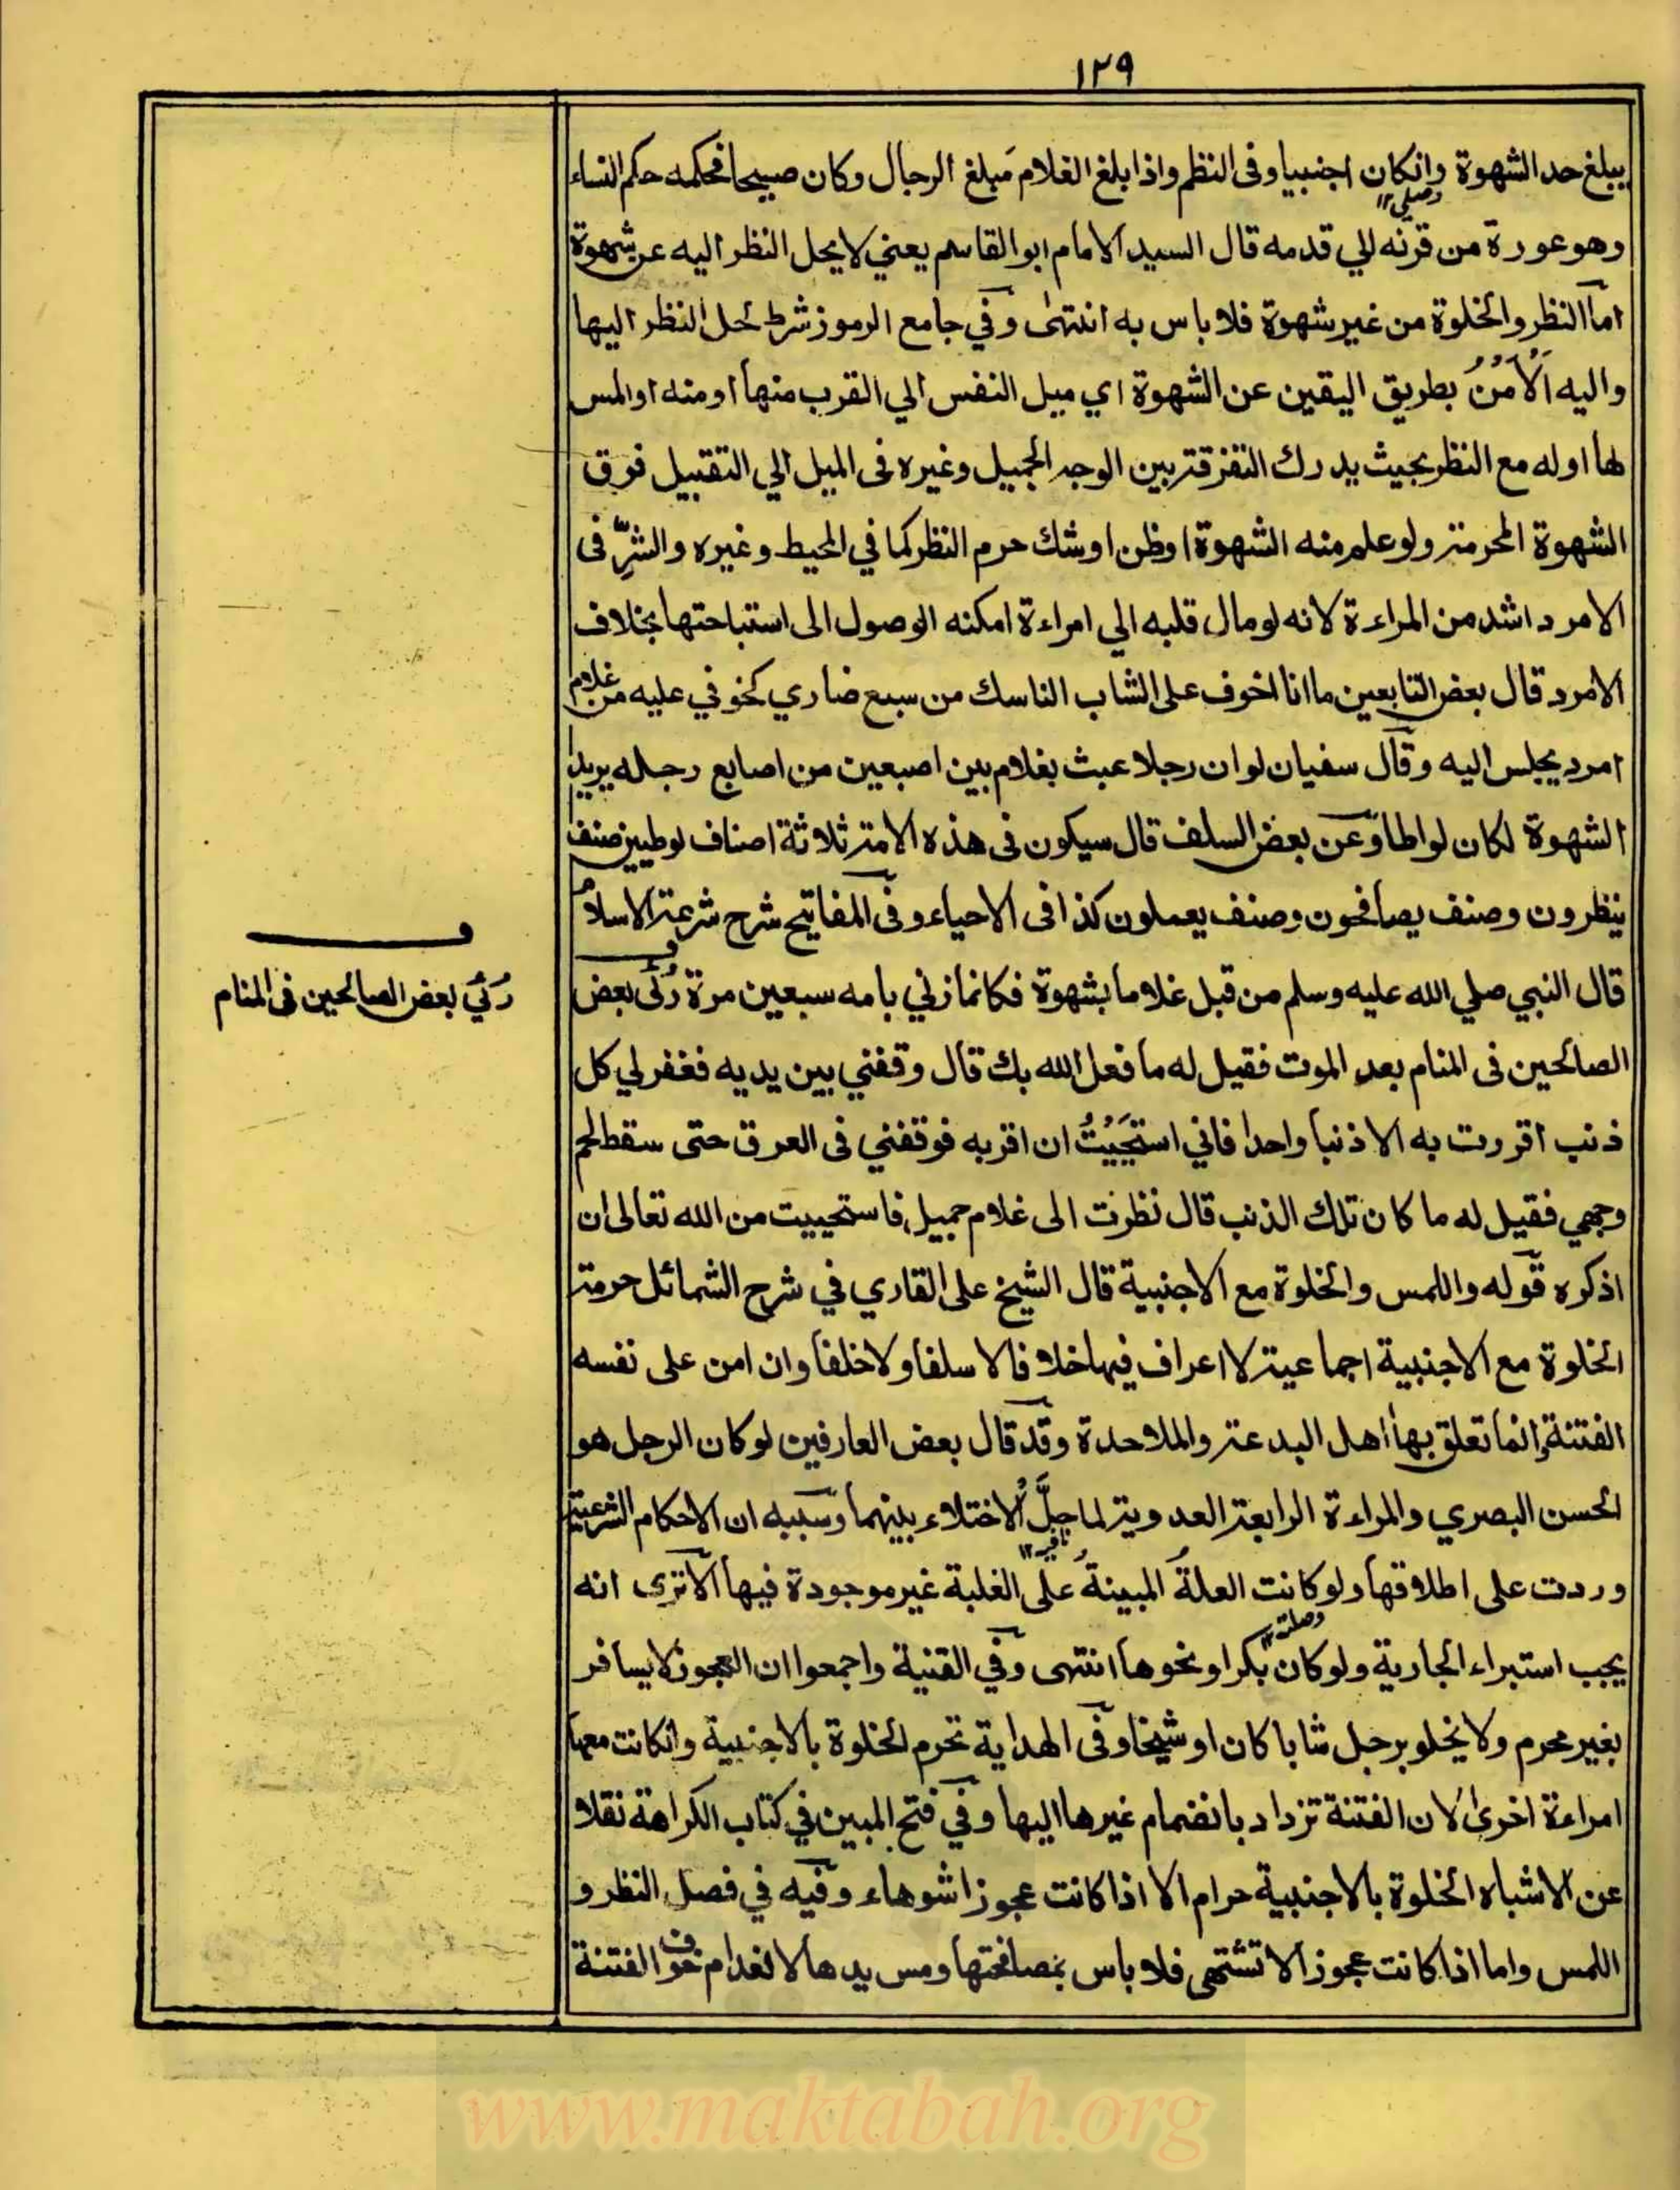 ١٢٩
يبلغ حد الشهوة وانكان اجنبيا وفى النظم واذا بلغ الغلام مَبلغ الرجال وكان صبيحا فحكمه حكم النساء
وصلى ١٢
وهو عورة من قرنه الي قدمه قال السيد الامام ابو القاسم يعني لا يحل النظر اليه عن شهوة
اما النظر والخلوة من غير شهوة فلا باس به انتهىٰ وفي جامع الرموز شرط لحل النظر اليها
واليه اَلْاَمْنُ بطريق اليقين عن الشهوة اي ميل النفس الي القرب منها او منه او المس
لها اوله مع النظر بحيث يدرك التفرقة بين الوجه الجميل وغيره فى الميل الي التقبيل فوق
الشهوة المحرمة ولو علم منه الشهوة او ظن او شك حرم النظر كما في المحيط وغيره والشرّ فى
الامرد اشد من المراءة لانه لو مال قلبه الي امراءة امكنه الوصول الى استباحتها بخلاف
الامرد قال بعض التابعين ما انا اخوف على الشاب الناسك من سبع ضاري كخوفي عليه من غلام
امرد يجلس اليه وقال سفيان لو ان رجلا عبث بغلام بين اصبعين من اصابع رجله يريد
الشهوة لكان لواطا وعن بعض السلف قال سيكون فى هذه الامة ثلاثة اصناف لوطيين صنف
ينظرون وصنف يصافحون وصنف يعملون كذا فى الاحياء وفى المفاتيح شرح شرعة الاسلام
قال النبي صلي الله عليه وسلم من قبل غلاما بشهوة فكانما زني بامه سبعين مرة رُئى بعض
رُئي بعض الصالحين فى المنام
الصالحين فى المنام بعد الموت فقيل له ما فعل الله بك قال وقفني بين يديه فغفر لي كل
ذنب اقررت به الا ذنبا واحدا فاني استحَيَيْتُ ان اقر به فوقفني فى العرق حتى سقط لحم
وجهي فقيل له ما كان تلك الذنب قال نظرت الى غلام جميل فاستحييت من الله تعالى ان
اذكره قوله واللمس والخلوة مع الاجنبية قال الشيخ على القاري في شرح الشمائل حرمة
الخلوة مع الاجنبية اجماعية لا اعراف فيها خلافا لا سلفا ولا خلفا وان امن على نفسه
الفتنة وانما تعلق بها اهل البدعة والملاحدة وقد قال بعض العارفين لو كان الرجل هو
الحسن البصري والمراءة الرابعة العدوية لما حِلَّ الاختلاء بينهما وسببه ان الاحكام الشرعية
نافيه ١٢
وردت على اطلاقها ولو كانت العلةُ المبينةُ على الغلبة غير موجودة فيها الا ترى انه
وصلته ١٢
يجب استبراء الجارية ولو كان بكرا ونحوها انتهى وفي القنية واجمعوا ان العجوز لا يسافر
بغير محرم ولا يخلو برجل شابا كان او شيخا وفى الهداية تحرم الخلوة بالاجنبية وانكانت معها
امراءة اخرىٰ لان الفتنة تزداد بانضمام غيرها اليها وفي فتح المبين في كتاب الكراهة نقلا
عن الاشباه الخلوة بالاجنبية حرام الا اذا كانت عجوزا شوهاء وفيه في فصل النظر و
اللمس واما اذا كانت عجوزا لا تشتهى فلا باس بمصافحتها ومس يدها لانعدام خوف الفتنة
www.maktabah.org